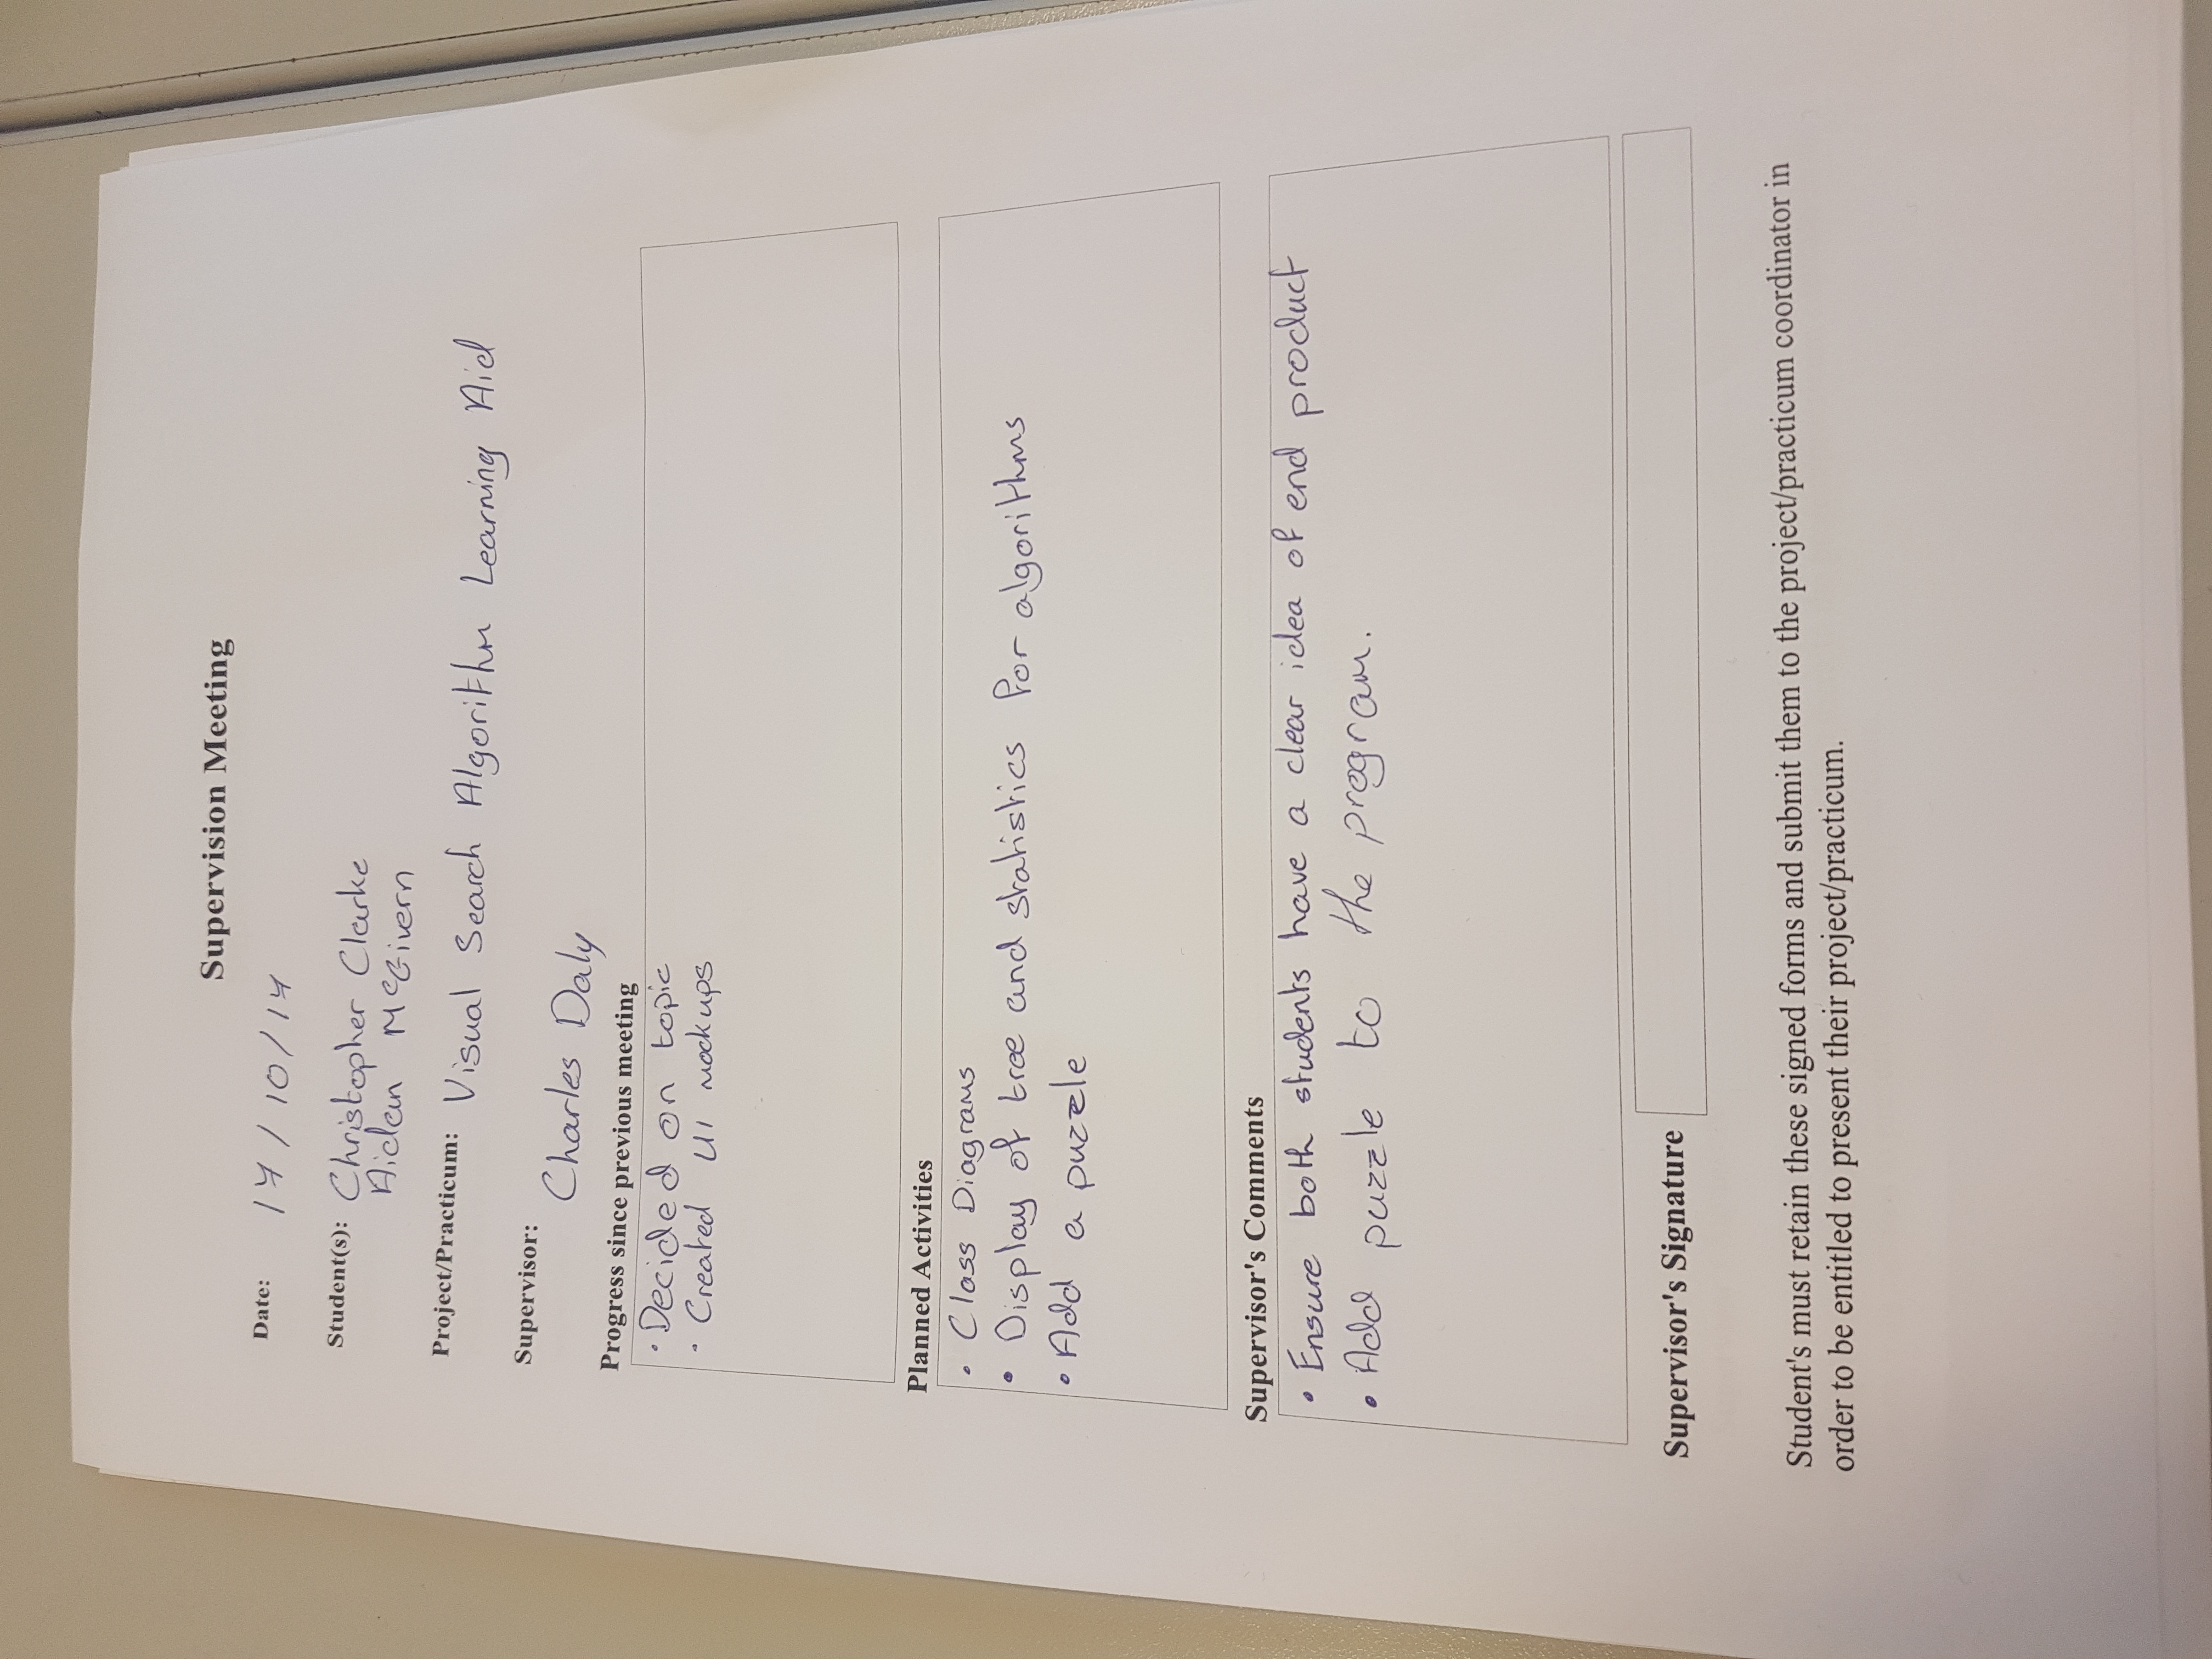 Supervision Meeting
Date: 17/10/17
Student(s): Christopher Clarke
Aidan McGivern
Project/Practicum: Visual Search Algorithm Learning Aid
Supervisor:
Charles Daly
Progress since previous meeting
· Decided on topic
· Created UI mockups
Planned Activities
· Class Diagrams
· Display of tree and statistics for algorithms
· Add a puzzle
Supervisor's Comments
· Ensure both students have a clear idea of end product
· Add puzzle to the program.
Supervisor's Signature
Student's must retain these signed forms and submit them to the project/practicum coordinator in
order to be entitled to present their project/practicum.